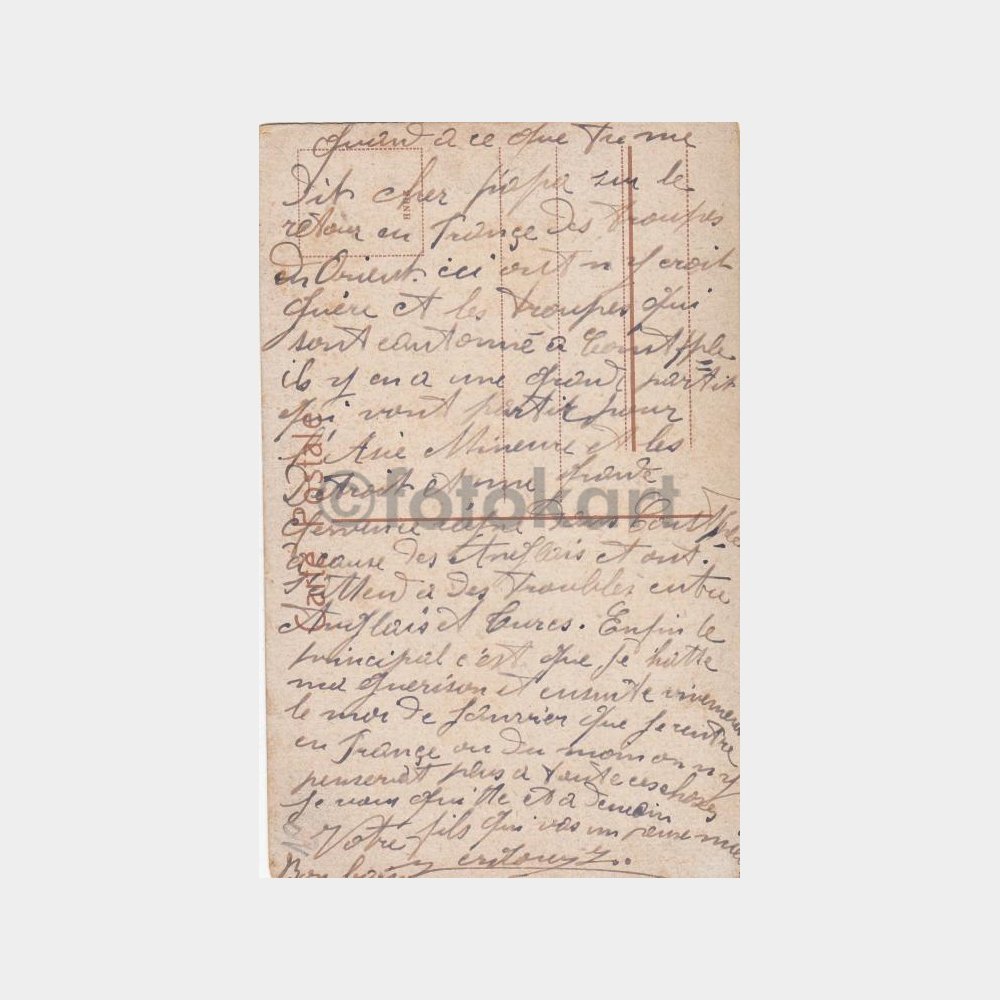 quand a ce que tu me
dit cher papa sur le
retour en France des troupes
en Orient ici ont n y croit
guère et les troupes qui
sont cantonné a Const/ple
il y en a une grande partit
qui vont partir pour
l'Asie Mineure et les
Détroit et une grande
règne dans Const/ple
a cause des Anglais et ont
s'attend a des troubles entre
Anglais et Turcs. Enfin le
principal c'est que je hatte
ma guerison et ensuite vivement
le moi de Janvier que je rentre
en France ou du moin on n y
penserat plus a toute ces choses
Je vous quitte et a demain
Votre fils qui vas un peu mieu
Bon
Carte Postale
©fotokart